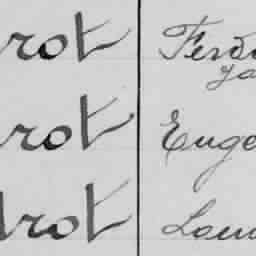 rot Ferd
Ja
rot Euge
rot Loui